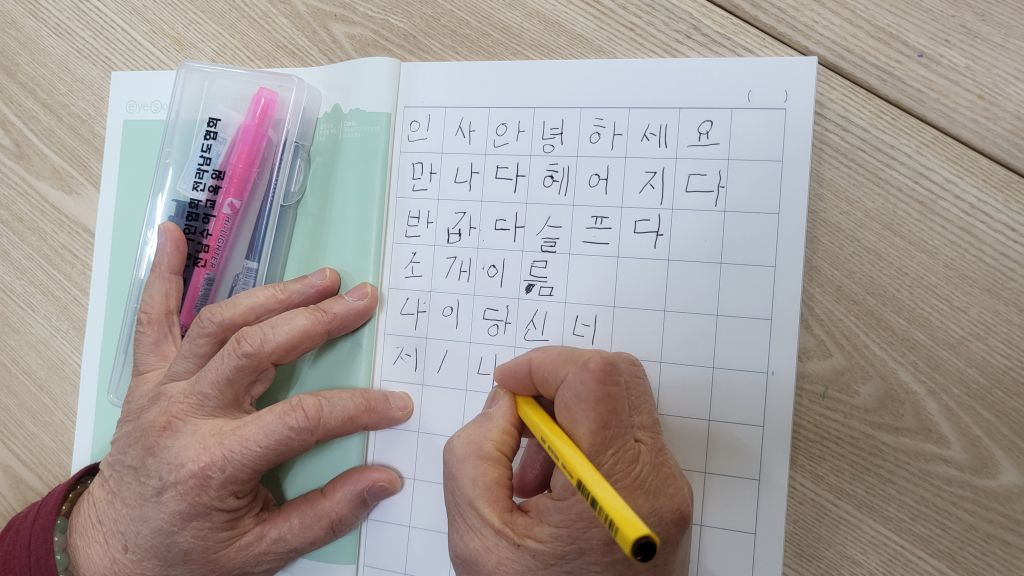 인사안녕하세요
만나다헤어지다
반갑다슬프다
소개이름
나이당신너
저/나
( )
전라남도협회
전남수어교육원
HIGHLIGHTER